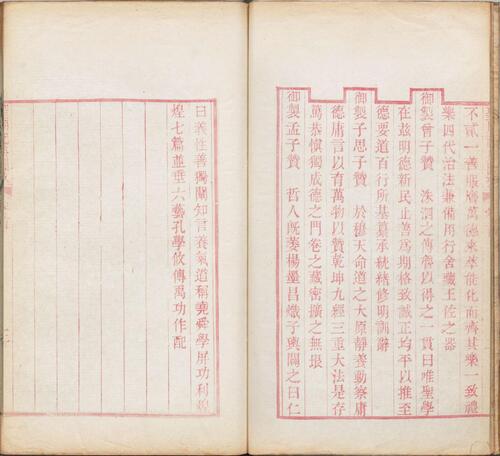 不貳一善服膺萬德來萃能化而齊其樂一致禮
樂四代治法兼備用行舍藏王佐之器
御製曾子贊 洙泗之傳魯以得之一貫曰唯聖學
在茲明德新民止善爲期格致誠正均平以推至
德要道百行所基纂承統緒修明訓辭
御製子思子贊 於穆天命道之大原靜養動察庸
德庸言以育萬物以贊乾坤九經三重大法是存
篤恭慎獨成德之門卷之藏密擴之無垠
御製孟子贊 哲人既萎楊墨昌熾子輿闢之曰仁
曰義性善獨闡知言養氣道稱堯舜學屏功利煌
煌七篇並垂六藝孔學攸傳禹功作配